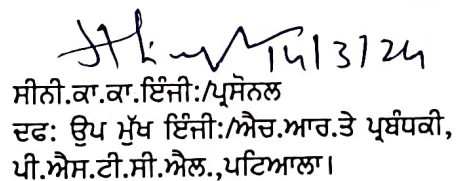 14/3/24
ਸੀਨੀ.ਕਾ.ਕਾ.ਇੰਜੀ:/ਪ੍ਰਸੋਨਲ
ਦਫ: ਉਪ ਮੁੱਖ ਇੰਜੀ:/ਐਚ.ਆਰ.ਤੇ ਪ੍ਰਬੰਧਕੀ,
ਪੀ.ਐਸ.ਟੀ.ਸੀ.ਐਲ.,ਪਟਿਆਲਾ।